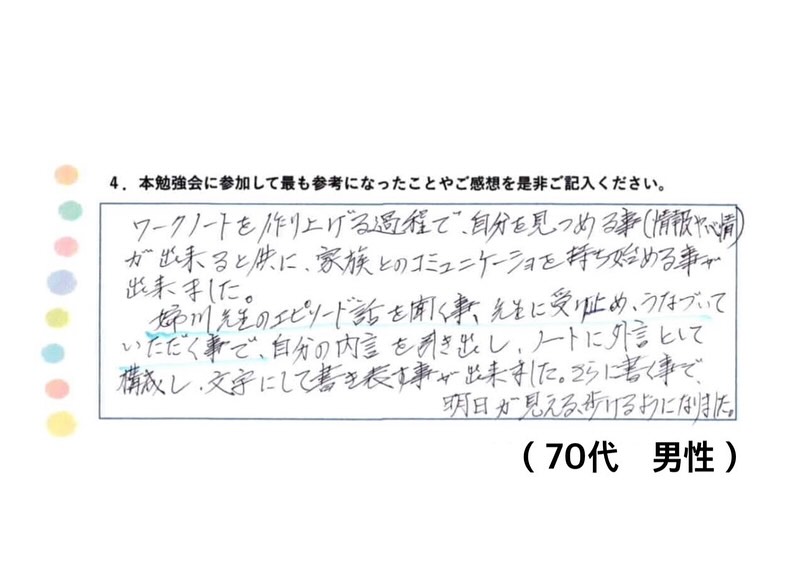 4．本勉強会に参加して最も参考になったことやご感想を是非ご記入ください。
ワークノートを作り上げる過程で、自分を見つめる事(情報や心情)
が出来ると供に、家族とのコミュニケーショを持ち始める事が
出来ました。
姉川先生のエピソード話を聞く事、先生に受け止め、うなづいて
いただく事で、自分の内言を引き出し、ノートに外言として
構成し、文字にして書き表す事が出来ました。さらに書く事で、
明日が見える、歩けるようになりました。
（70代　男性）